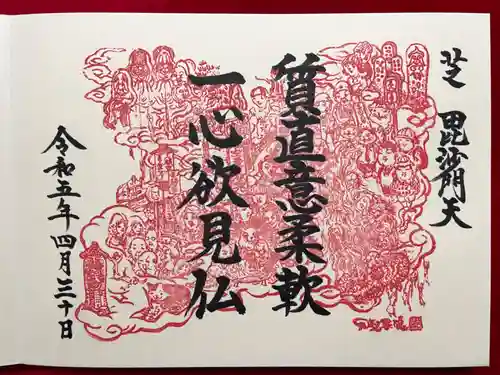 芝 毘沙門天
質直意柔軟
一心欲見仏
令和五年四月三十日